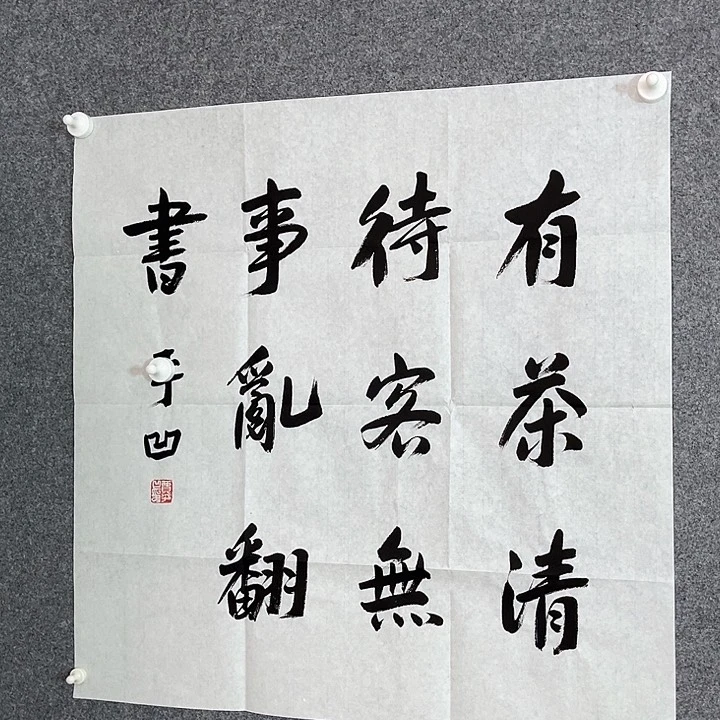 有茶清
待客無
事亂翻
書
平凹